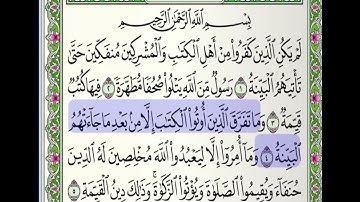 بِسْمِ ٱللَّهِ ٱلرَّحْمَٰنِ ٱلرَّحِيمِ
لَمْ يَكُنِ ٱلَّذِينَ كَفَرُوا۟ مِنْ أَهْلِ ٱلْكِتَٰبِ وَٱلْمُشْرِكِينَ مُنفَكِّينَ حَتَّىٰ
تَأْتِيَهُمُ ٱلْبَيِّنَةُ ١ رَسُولٌ مِّنَ ٱللَّهِ يَتْلُوا۟ صُحُفًا مُّطَهَّرَةً ٢ فِيهَا كُتُبٌ
قَيِّمَةٌ ٣ وَمَا تَفَرَّقَ ٱلَّذِينَ أُوتُوا۟ ٱلْكِتَٰبَ إِلَّا مِنۢ بَعْدِ مَا جَآءَتْهُمُ
ٱلْبَيِّنَةُ ٤ وَمَآ أُمِرُوٓا۟ إِلَّا لِيَعْبُدُوا۟ ٱللَّهَ مُخْلِصِينَ لَهُ ٱلدِّينَ
حُنَفَآءَ وَيُقِيمُوا۟ ٱلصَّلَوٰةَ وَيُؤْتُوا۟ ٱلزَّكَوٰةَ ۚ وَذَٰلِكَ دِينُ ٱلْقَيِّمَةِ ٥